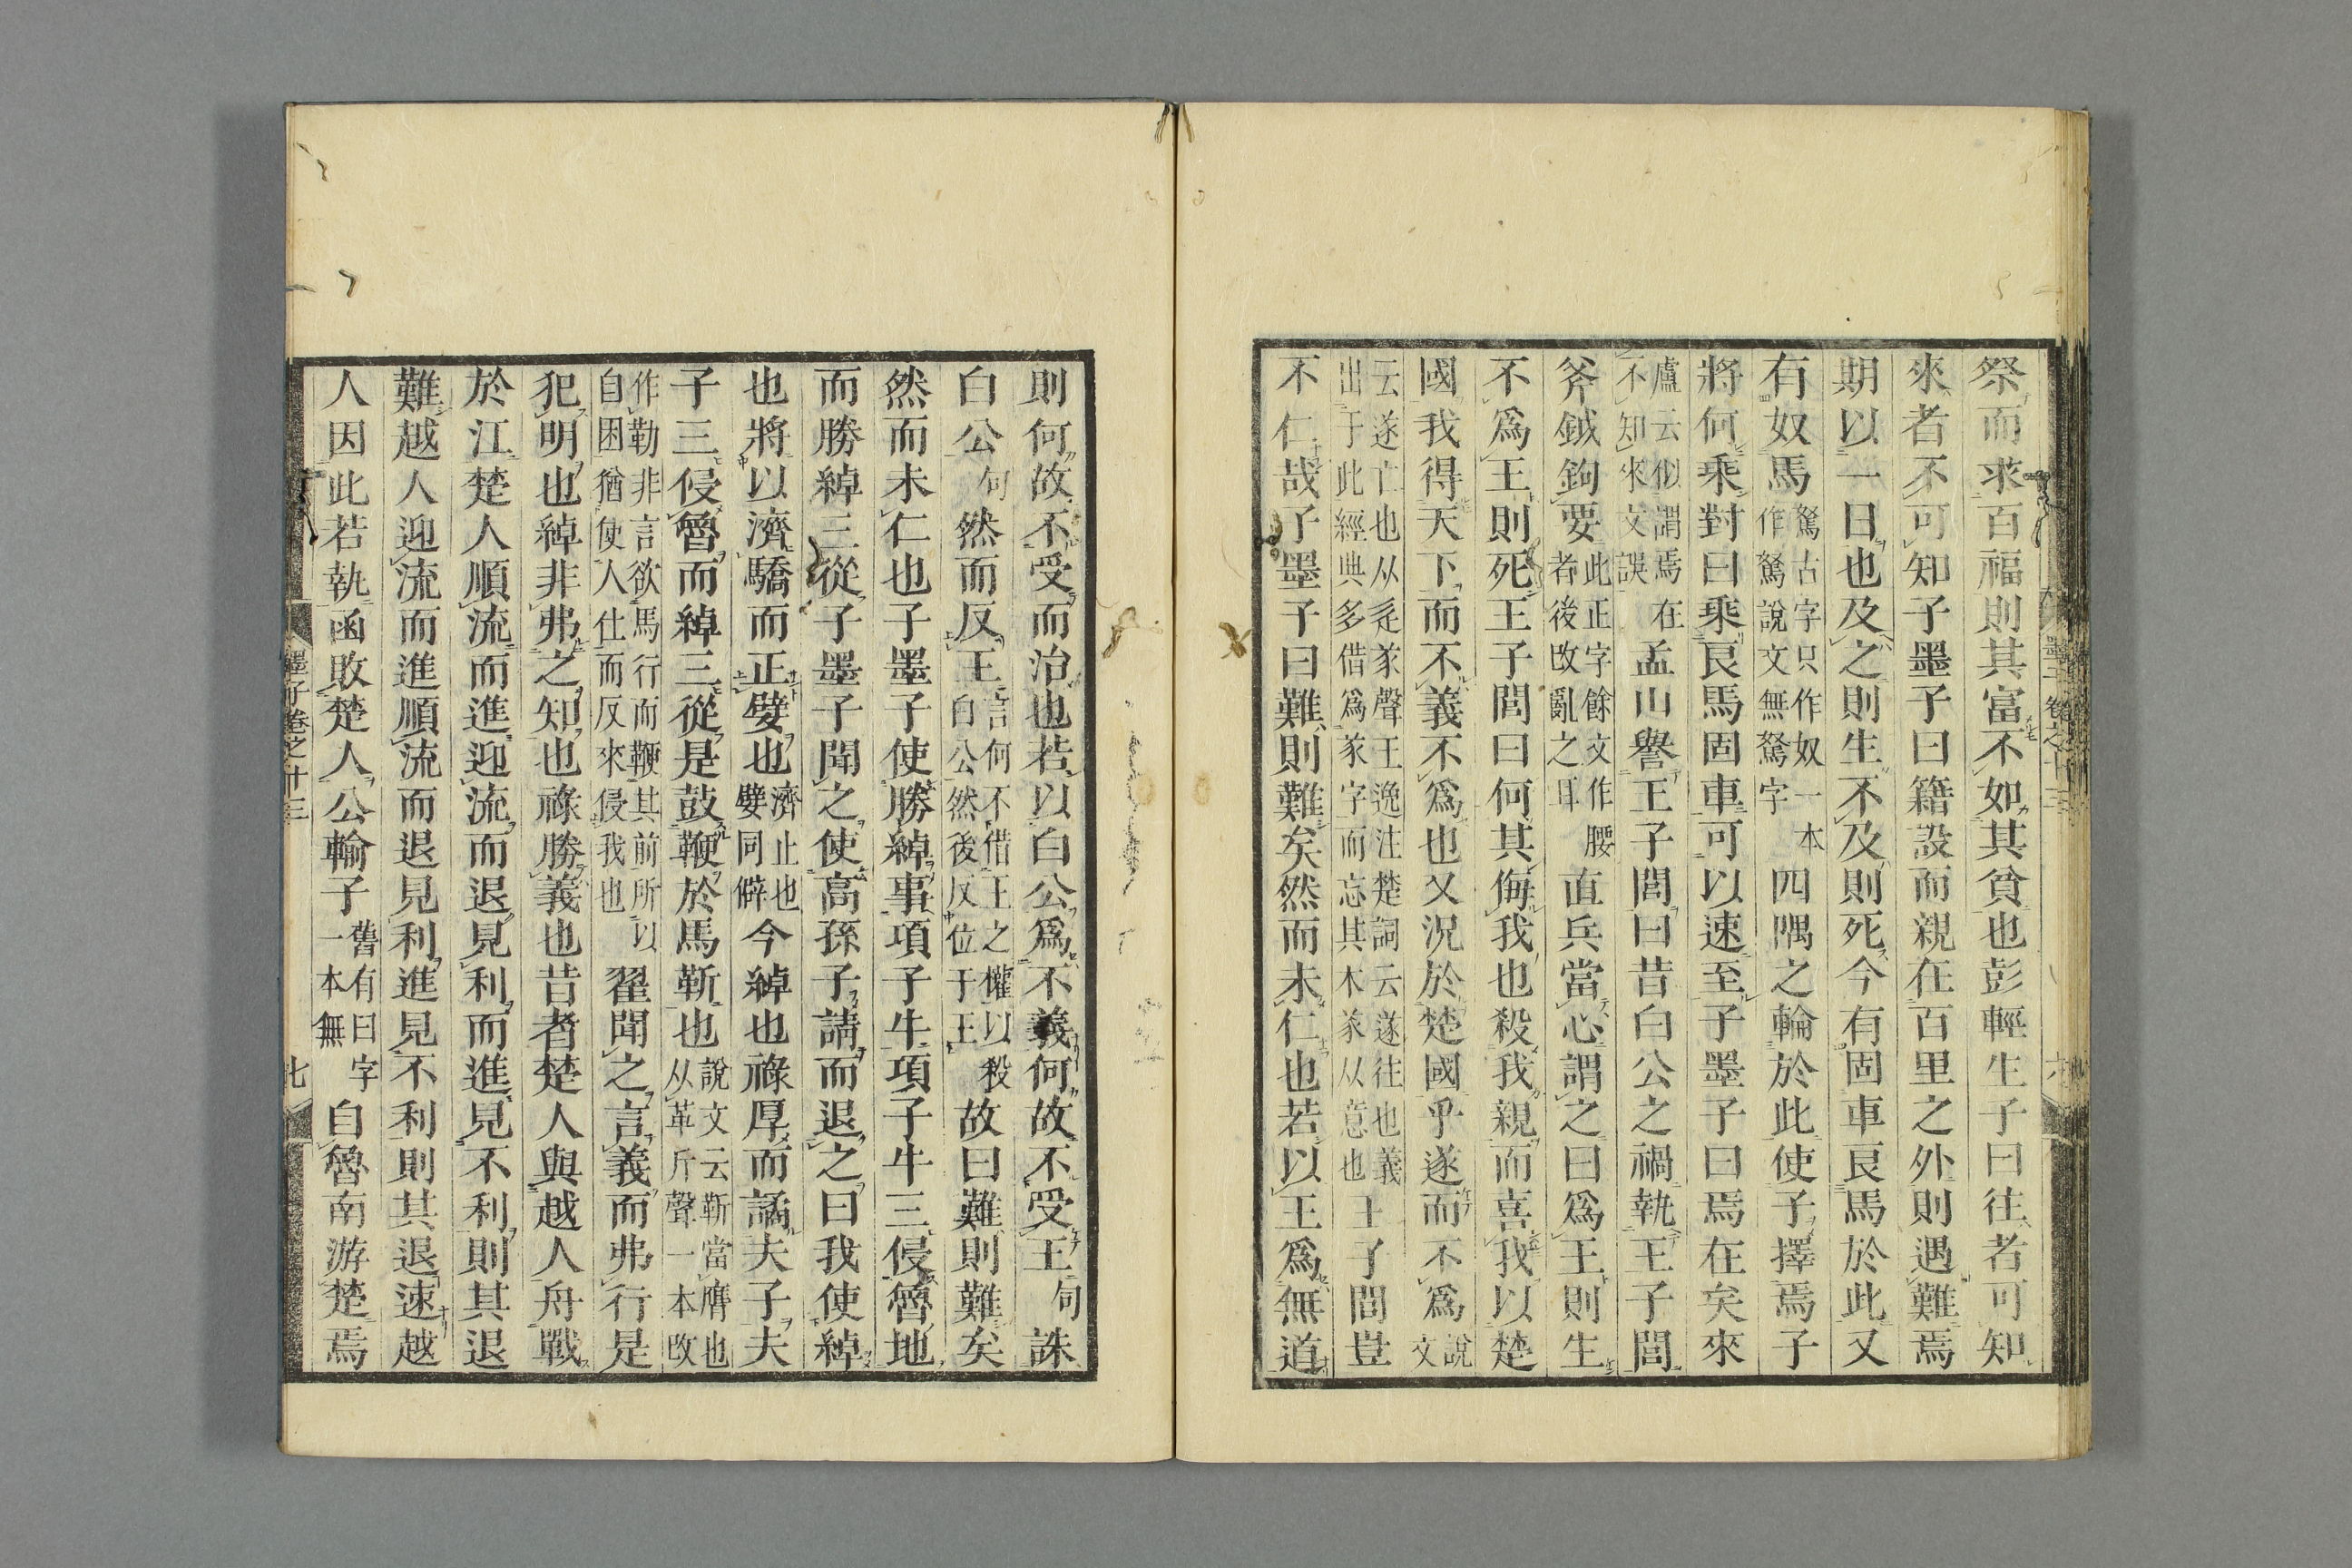 祭而求百福則其富不如其貧也彭輕生子曰往者可知
來者不可知子墨子曰籍設而親在百里之外則遇難焉
期以一日也及之則生不及則死今有固車良馬於此又
有奴馬駑古字只作奴一本作駑說文無駑字四隅之輪於此使子擇焉子
將何乘對曰乘良馬固車可以速至子墨子曰焉在矣來
盧云似謂焉在不知來文誤孟山譽王子閭曰昔白公之禍執王子閭
斧鉞鉤要此正字餘文作腰者後改亂之耳直兵當心謂之曰爲王則生
不爲王則死王子閭曰何其侮我也殺我親而喜我以楚
國我得天下而不義不爲也又況於楚國乎遂而不爲說文
云遂亡也从辵㒸聲王逸注楚詞云遂往也義出于此經典多借爲㒸字而忘其本㒸从意也王子閭豈
不仁哉子墨子曰難則難矣然而未仁也若以王爲無道
墨子卷之十三 六
則何故不受而治也若以白公爲不義何故不受王句誅
白公句然而反王言何不借王之權以殺白公然後反位于王故曰難則難矣
然而未仁也子墨子使勝綽事項子牛項子牛三侵魯地
而勝綽三從子墨子聞之使高孫子請而退之曰我使綽
也將以濟驕而正嬖也濟止也嬖同僻今綽也祿厚而譎夫子夫
子三侵魯而綽三從是鼓鞭於馬靳也說文云靳當膺也从革斤聲一本改
作勒非言欲馬行而鞭其前所以自困猶使人仕而反來侵我也翟聞之言義而弗行是
犯明也綽非弗之知也祿勝義也昔者楚人與越人舟戰
於江楚人順流而進迎流而退見利而進見不利則其退
難越人迎流而進順流而退見利進見不利則其退速越
人因此若執函敗楚人公輸子舊有曰字一本無自魯南游楚焉
墨子卷之十三 七